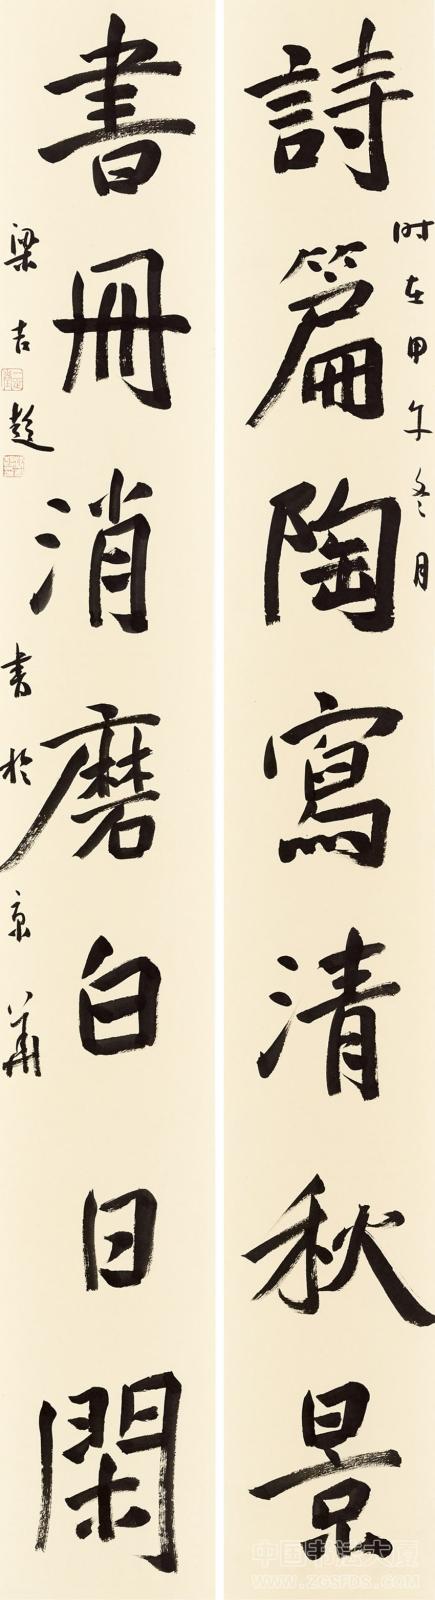 詩篇陶寫清秋景
时在甲午冬月
書冊消磨白日閑
梁吉
書於京華
中国书法大厦
WWW.ZGSFDS.COM